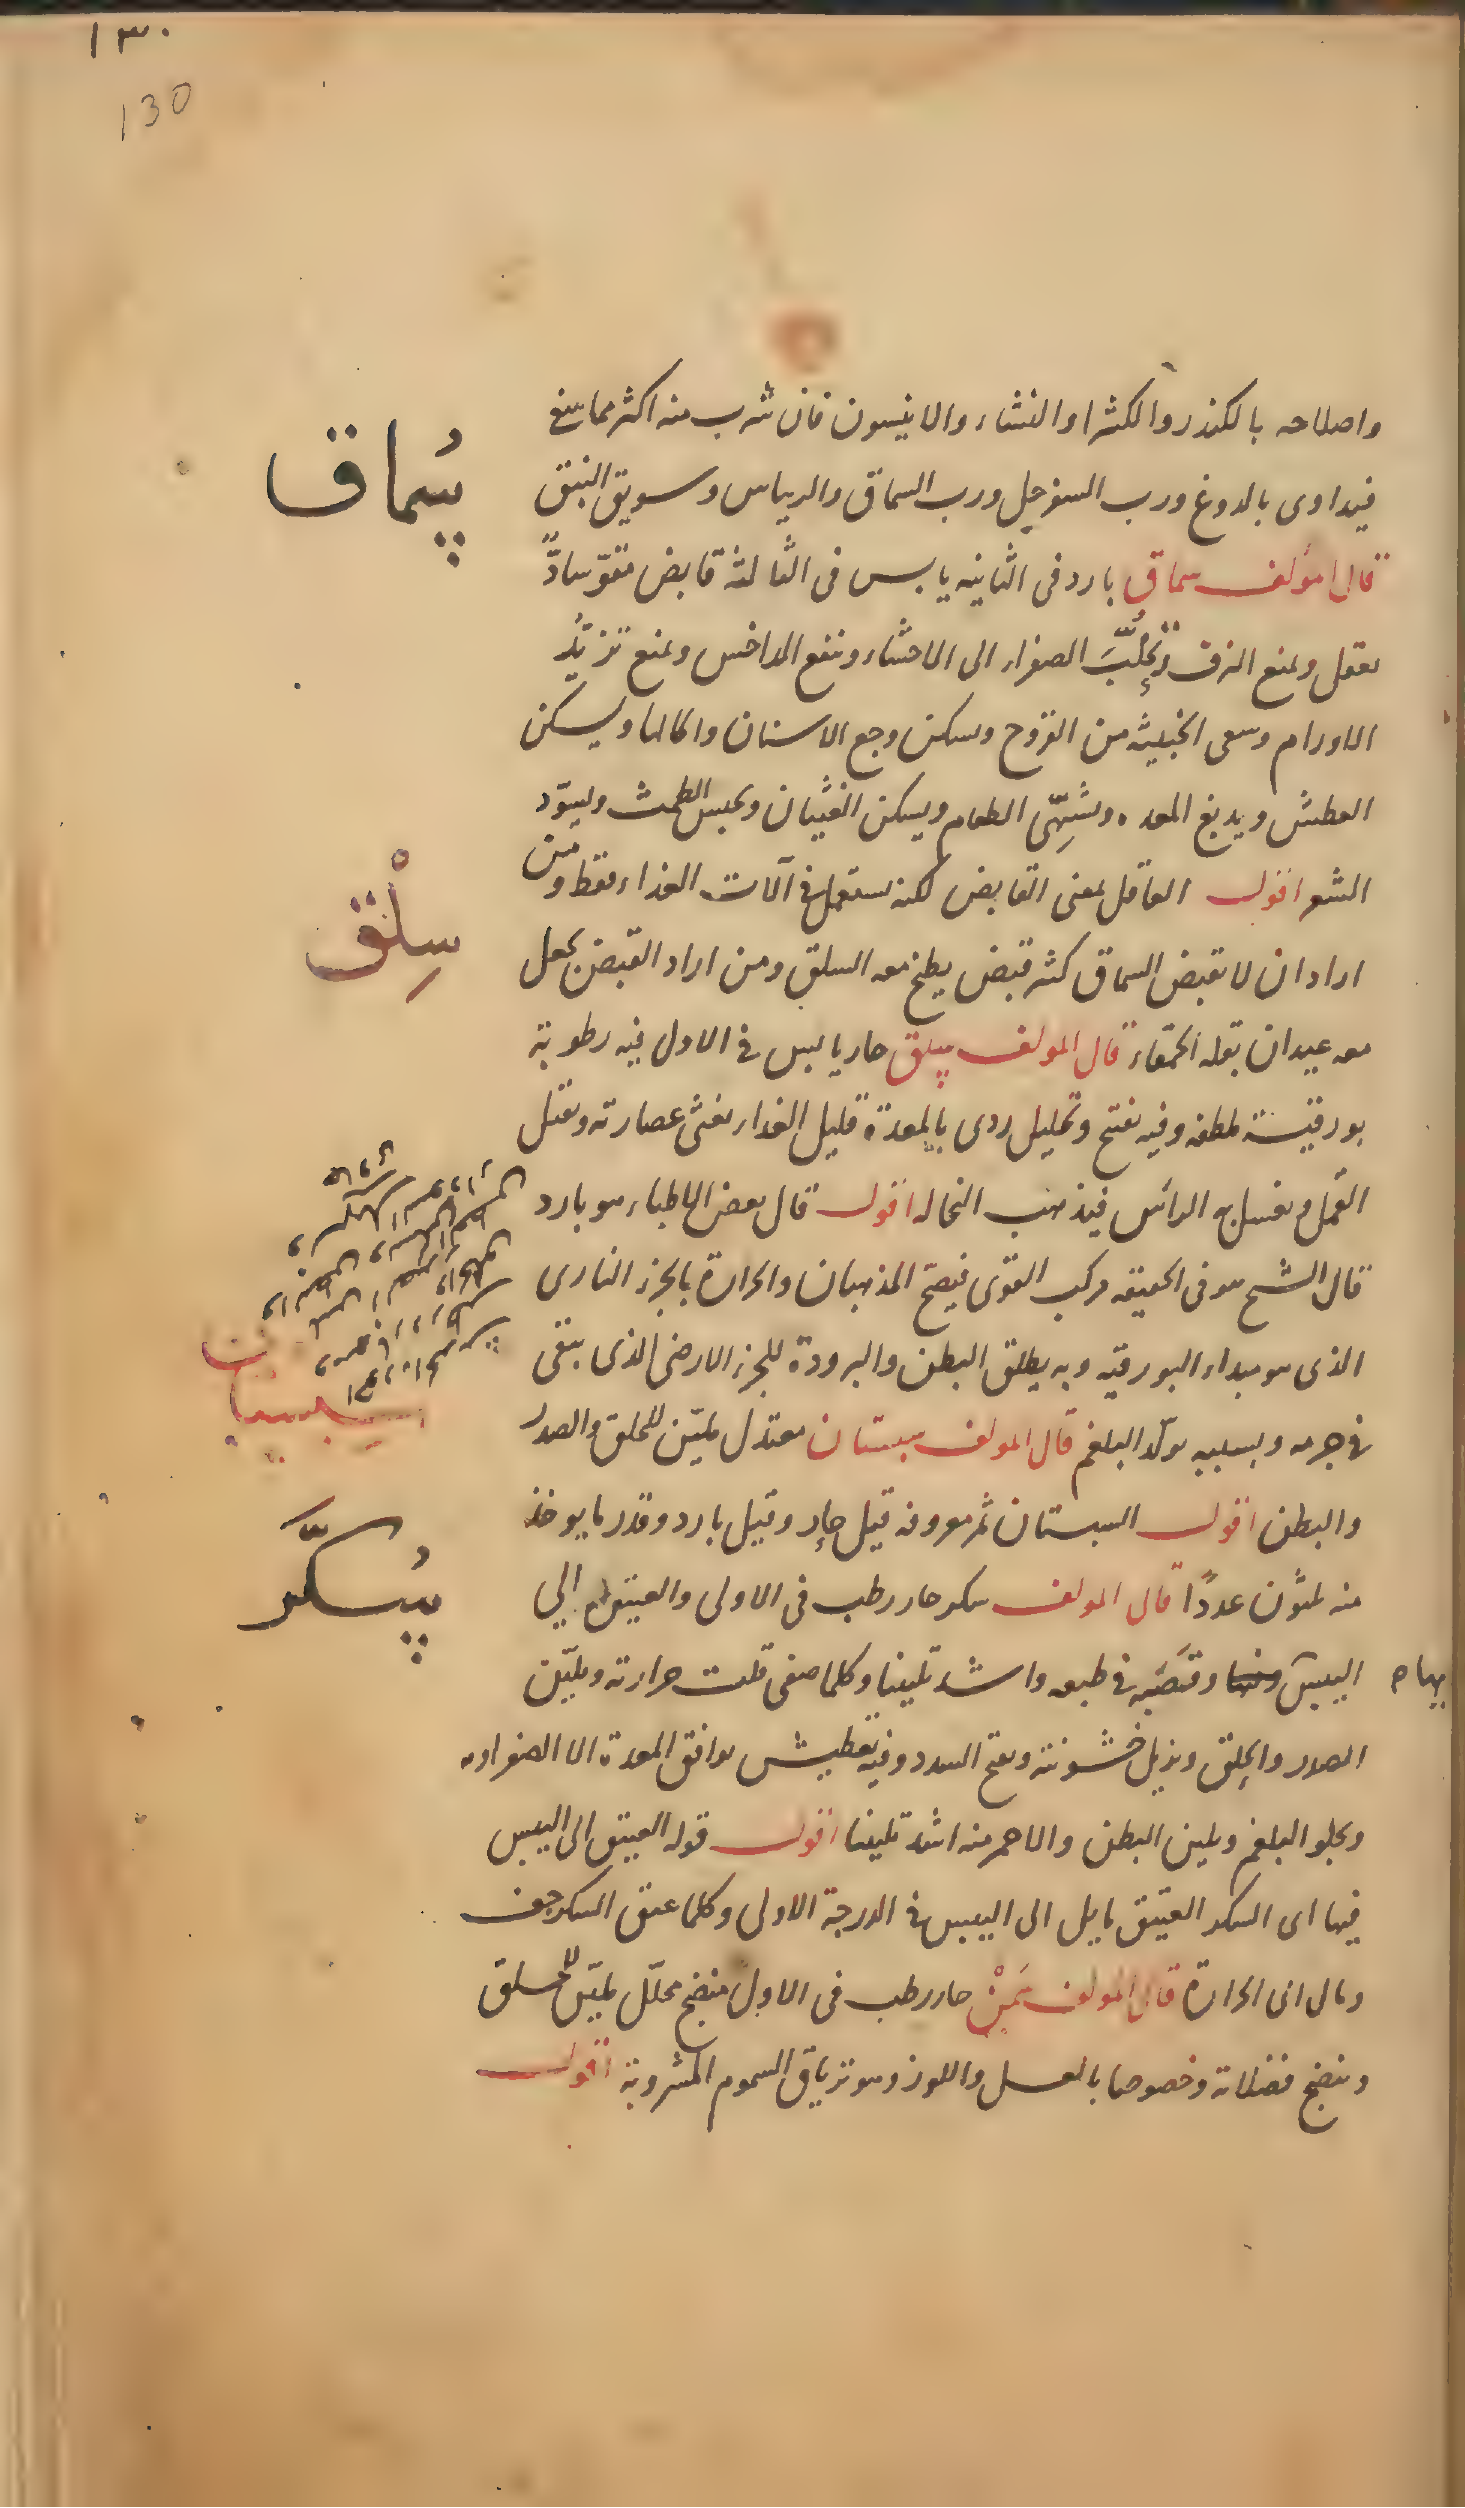 ١٣٠
130
واصلاحه بالكندر والكثيرا والنشاء والانيسون فان شرب منه اكثر مما ينبغي
فيداوى بالدوغ ورب السفرجل ورب السماق والريباس وسويق النبق
قال المؤلف سماق بارد فى الثانيه يابس فى الثالثة قابض مقوّ سادًّ
يعقل ويمنع النزف وتحلُّبَ الصفراء الى الاحشاء وينفع الداخس ويمنع تزيّدُ
الاورام وسعى الخبيثة من القروح ويسكن وجع الاسنان واكالها ويسكن
العطش ويدبغ المعده ويشهّى الطعام ويسكن الغثيان ويحبس الطمث ويسوّد
الشعر اقول العاقل بمعنى القابض لكنه يستعمل فى آلات الغذاء فقط ومن
اراد ان لا يقبض السماق كثير قبض يطبخ معه السلق ومن اراد القبض يجعل
معه عيدان بقله الحمقاء قال المولف سلق حار يابس فى الاول فيه رطوبة
بورقيّة ملطفه وفيه تفتيح وتحليل ردى بالمعدة قليل الغداء يغثى عصارته ويقتل
القمل ويغسل به الرأس فيذهب النخاله اقول قال بعض الاطباء هو بارد
قال الشيخ هو فى الحقيقه مركب القوى فيصح المذهبان والحرارة بالجزء النارى
الذى هو مبداء البورقيه وبه يطلق البطن والبرودة للجزء الارضى الذى يبقى
فى جرمه وبسببه يولد البلغم قال المولف سبستان معتدل مليّن للحلق والصدر
والبطن اقول السبستان ثمر معروف قيل حار وقيل بارد وقدر ما يوخذ
منه ثلثون عددًا قال المولف سكر حار رطب فى الاولى والعتيق الي
اليبس وقصبه فى طبعه واشد تليينا وكلما صفى قلت حرارته ويليّن
فيها ه
الصدر والحلق ويزيل خشونته ويفتح السدد وفيه تعطيش يوافق المعدة الا الصفراويه
ويجلو البلغم ويلين البطن والاحمر منه اشد تليينا اقول قوله العتيق الى اليبس
فيها اى السكر العتيق مايل الى اليبس فى الدرجة الاولى وكلما عتق السكر جف
ومال الى الحرارة قال المولف سَمْنٌ حار رطب فى الاول منضج محلّل مليّن للحلق
وينضج فضلاته وخصوصا بالعسل واللوز وهو ترياق السموم المشروبة اقول
سُماق
سِلْق
سبستان
سُكّر